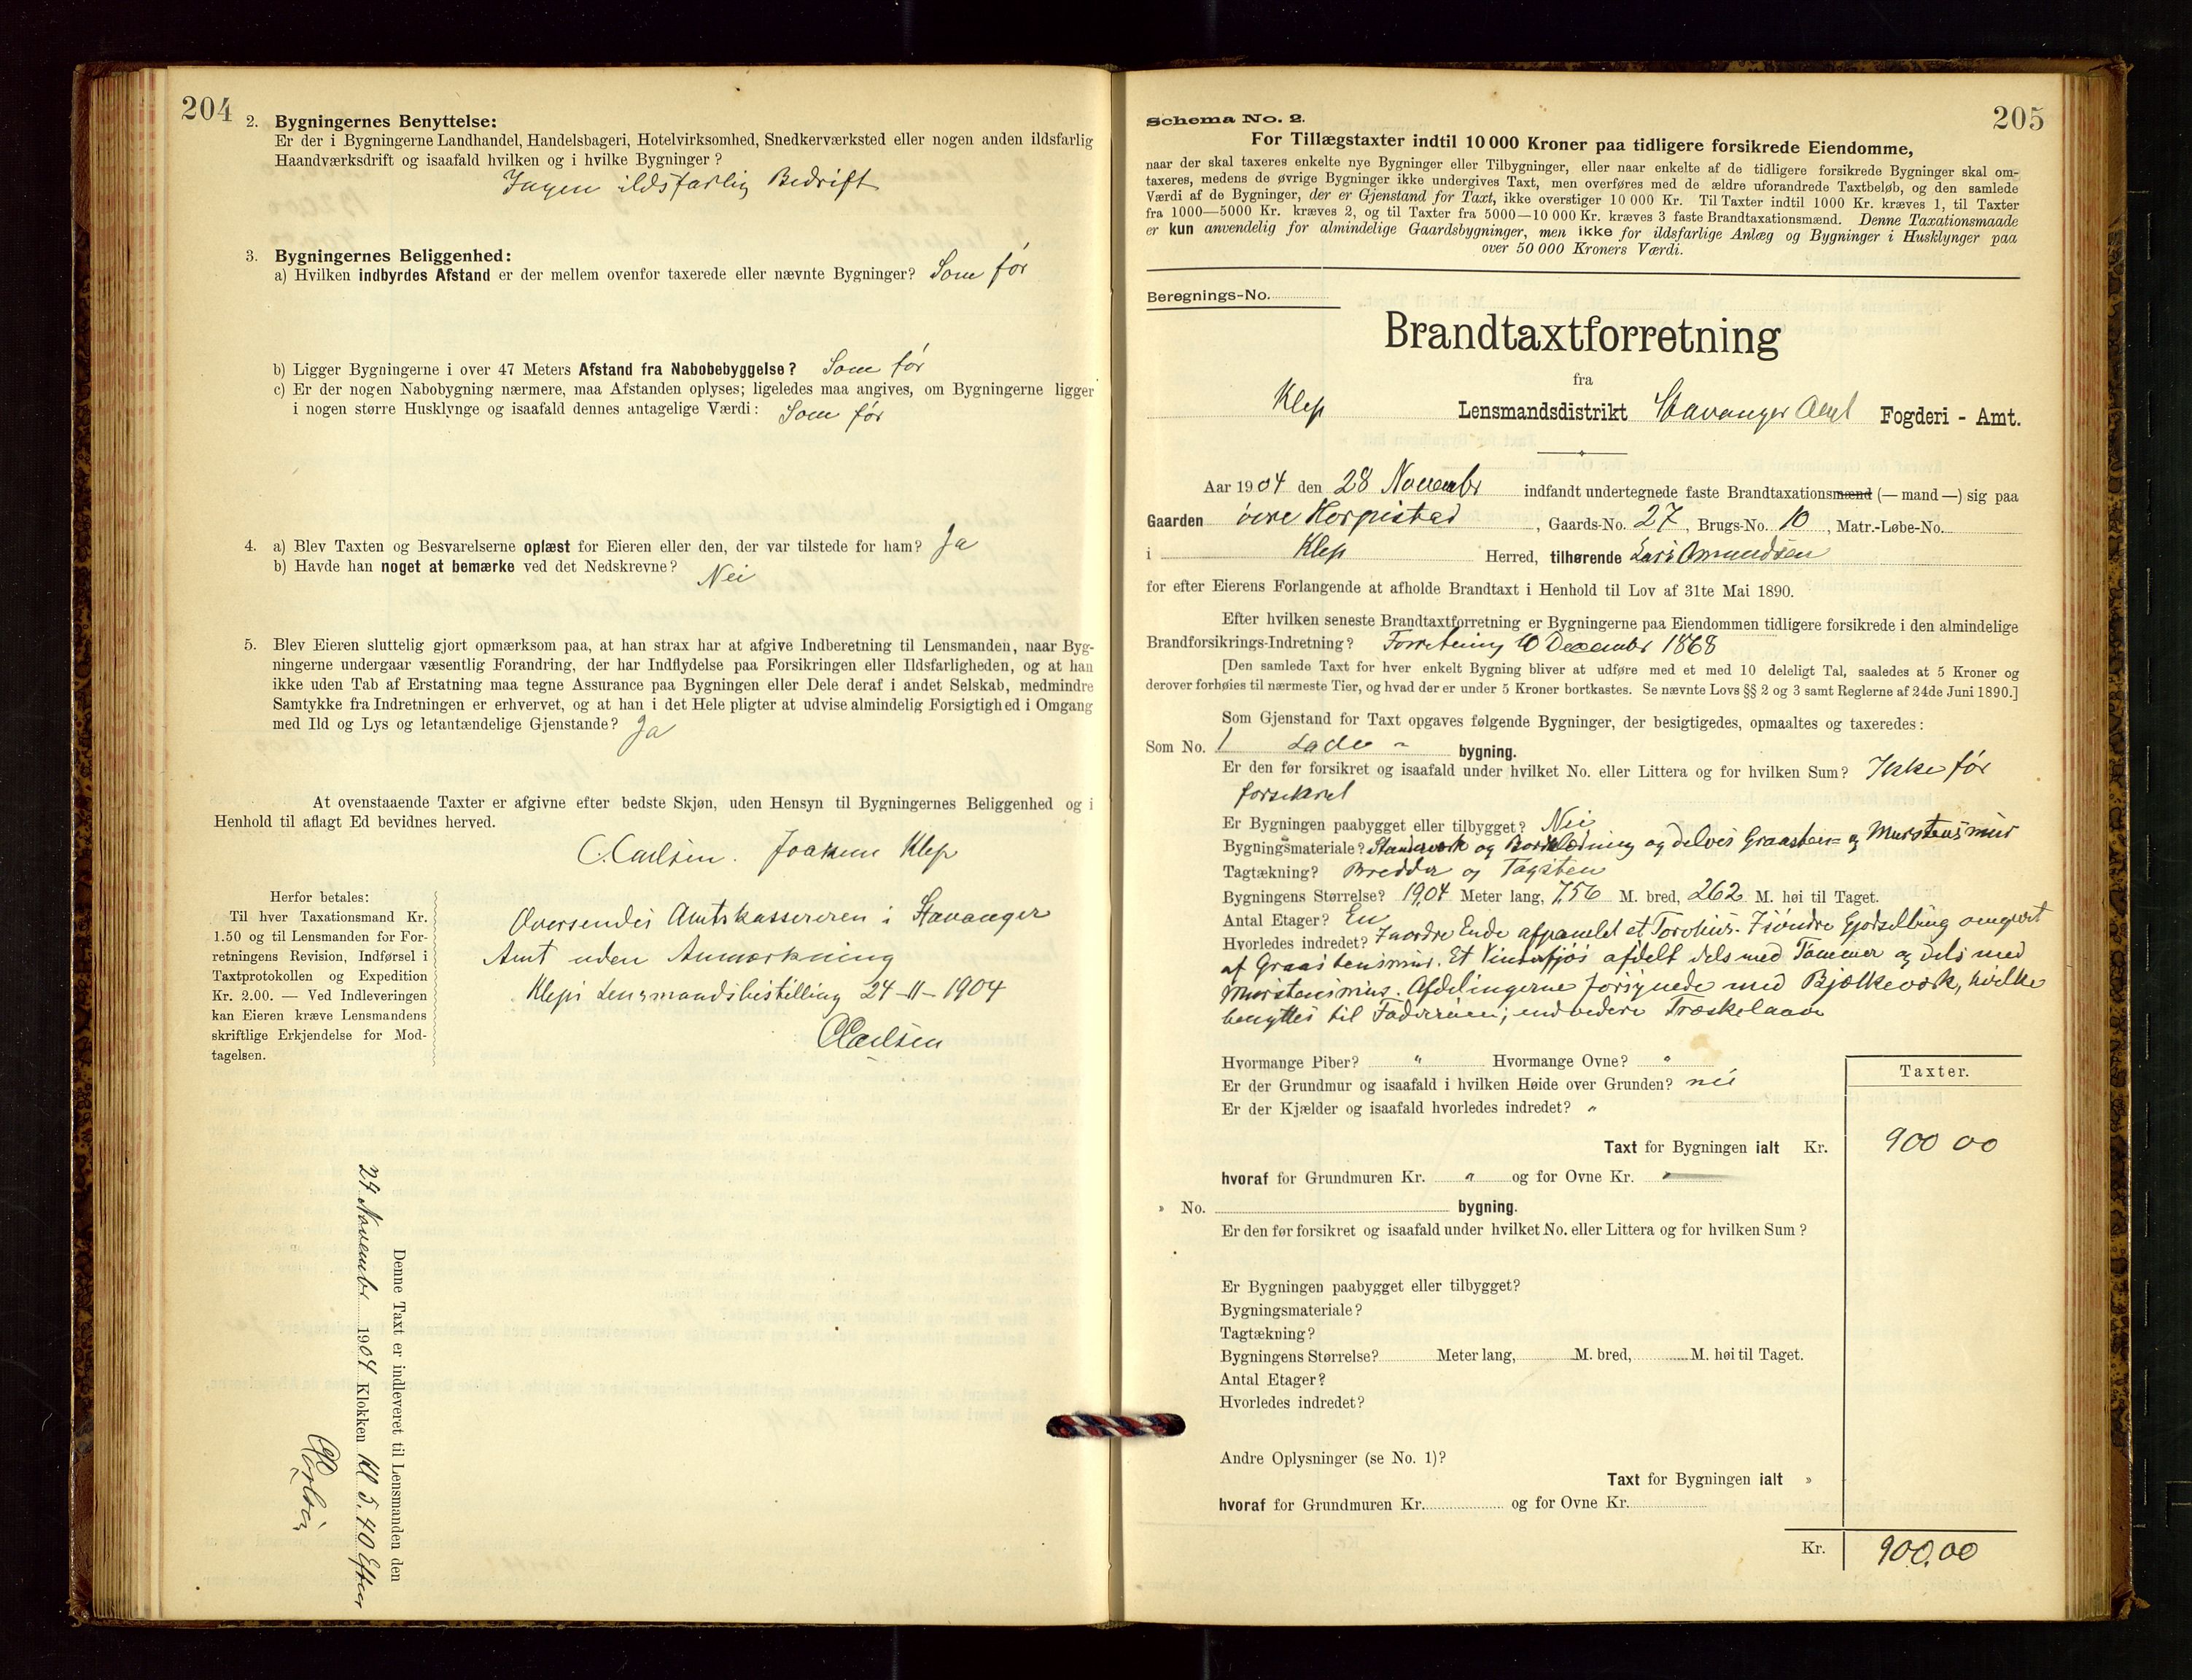 204
2. Bygningernes Benyttelse:
Er der i Bygningerne Landhandel, Handelsbageri, Hotelvirksomhed, Snedkerværksted eller nogen anden ildsfarlig
Haandværksdrift og isaafald hvilken og i hvilke Bygninger?
Ingen ildsfarlig Bedrift
3. Bygningernes Beliggenhed:
a) Hvilken indbyrdes Afstand er der mellem ovenfor taxerede eller nævnte Bygninger? Som før
b) Ligger Bygningerne i over 47 Meters Afstand fra Nabobebyggelse? Som før
c) Er der nogen Nabobygning nærmere, maa Afstanden oplyses; ligeledes maa angives, om Bygningerne ligger
i nogen større Husklynge og isaafald dennes antagelige Værdi: Som før
4. a) Blev Taxten og Besvarelserne oplæst for Eieren eller den, der var tilstede for ham? Ja
b) Havde han noget at bemærke ved det Nedskrevne? Nei
5. Blev Eieren sluttelig gjort opmærksom paa, at han strax har at afgive Indberetning til Lensmanden, naar Byg-
ningerne undergaar væsentlig Forandring, der har Indflydelse paa Forsikringen eller Ildsfarligheden, og at han
ikke uden Tab af Erstatning maa tegne Assurance paa Bygningen eller Dele deraf i andet Selskab, medmindre
Samtykke fra Indretningen er erhvervet, og at han i det Hele pligter at udvise almindelig Forsigtighed i Omgang
med Ild og Lys og letantændelige Gjenstande? Ja
At ovenstaaende Taxter er afgivne efter bedste Skjøn, uden Hensyn til Bygningernes Beliggenhed og i
Henhold til aflagt Ed bevidnes herved.
C. Carlsen. Joakim Klep
Herfor betales:
Til hver Taxationsmand Kr.
1.50 og til Lensmanden for For-
retningens Revision, Indførsel i
Taxtprotokollen og Expedition
Kr. 2.00. — Ved Indleveringen
kan Eieren kræve Lensmandens
skriftlige Erkjendelse for Mod-
tagelsen.
Oversendes Amtskassereren i Stavanger
Amt uden Anmærkning
Kleps Lensmandsbestilling 24-11-1904
C Carlsen
Denne Taxt er indleveret til Lensmanden den
24 Novembr 1904 Klokken Kl 5.40 Efter
C Carlsen
Schema No. 2.
205
For Tillægstaxter indtil 10 000 Kroner paa tidligere forsikrede Eiendomme,
naar der skal taxeres enkelte nye Bygninger eller Tilbygninger, eller naar enkelte af de tidligere forsikrede Bygninger skal om-
taxeres, medens de øvrige Bygninger ikke undergives Taxt, men overføres med de ældre uforandrede Taxtbeløb, og den samlede
Værdi af de Bygninger, der er Gjenstand for Taxt, ikke overstiger 10 000 Kr. Til Taxter indtil 1000 Kr. kræves 1, til Taxter
fra 1000—5000 Kr. kræves 2, og til Taxter fra 5000—10 000 Kr. kræves 3 faste Brandtaxationsmænd. Denne Taxationsmaade
er kun anvendelig for almindelige Gaardsbygninger, men ikke for ildsfarlige Anlæg og Bygninger i Husklynger paa
over 50 000 Kroners Værdi.
Beregnings-No.
Brandtaxtforretning
fra
Klep Lensmandsdistrikt Stavanger Amt Fogderi - Amt.
Aar 1904 den 28 Novembr indfandt undertegnede faste Brandtaxationsmænd (— mand —) sig paa
Gaarden øvre Horpestad, Gaards-No. 27, Brugs-No. 10, Matr.-Løbe-No.
i Klep Herred, tilhørende Lars Omundsen
for efter Eierens Forlangende at afholde Brandtaxt i Henhold til Lov af 31te Mai 1890.
Efter hvilken seneste Brandtaxtforretning er Bygningerne paa Eiendommen tidligere forsikrede i den almindelige
Brandforsikrings-Indretning? Forretning 10 December 1868
[Den samlede Taxt for hver enkelt Bygning bliver at udføre med et med 10 deleligt Tal, saaledes at 5 Kroner og
derover forhøies til nærmeste Tier, og hvad der er under 5 Kroner bortkastes. Se nævnte Lovs §§ 2 og 3 samt Reglerne af 24de Juni 1890.]
Som Gjenstand for Taxt opgaves følgende Bygninger, der besigtigedes, opmaaltes og taxeredes:
Som No. 1 Lade - bygning.
Er den før forsikret og isaafald under hvilket No. eller Littera og for hvilken Sum? Ikke før
forsikret
Er Bygningen paabygget eller tilbygget? Nei
Bygningsmateriale? Standerværk og Bordklædning og delvis Graasten- og Murstensmur
Tagtækning? Bredder og Tagsten
Bygningens Størrelse? 1904 Meter lang, 756 M. bred, 262 M. høi til Taget.
Antal Etager? En
Hvorledes indredet? I nordre Ende afpanelet et Torvhus. I søndre omgivet
af Graastensmur. Et afdelt dels med Tømmer og dels med
Murstensmur. Afdelingerne forsynede med Bjælkeværk, hvilke
benyttes til endvidere Træskelaave
Hvormange Piber? " Hvormange Ovne? "
Er der Grundmur og isaafald i hvilken Høide over Grunden? nei
Er der Kjælder og isaafald hvorledes indredet? "
Taxter.
Taxt for Bygningen ialt Kr. 900 00
hvoraf for Grundmuren Kr. " og for Ovne Kr. "
» No. bygning.
Er den før forsikret og isaafald under hvilket No. eller Littera og for hvilken Sum?
Er Bygningen paabygget eller tilbygget?
Bygningsmateriale?
Tagtækning?
Bygningens Størrelse? Meter lang, M. bred, M. høi til Taget.
Antal Etager?
Hvorledes indredet?
Andre Oplysninger (se No. 1)?
Taxt for Bygningen ialt »
hvoraf for Grundmuren Kr. og for Ovne Kr.
Kr. 900.00